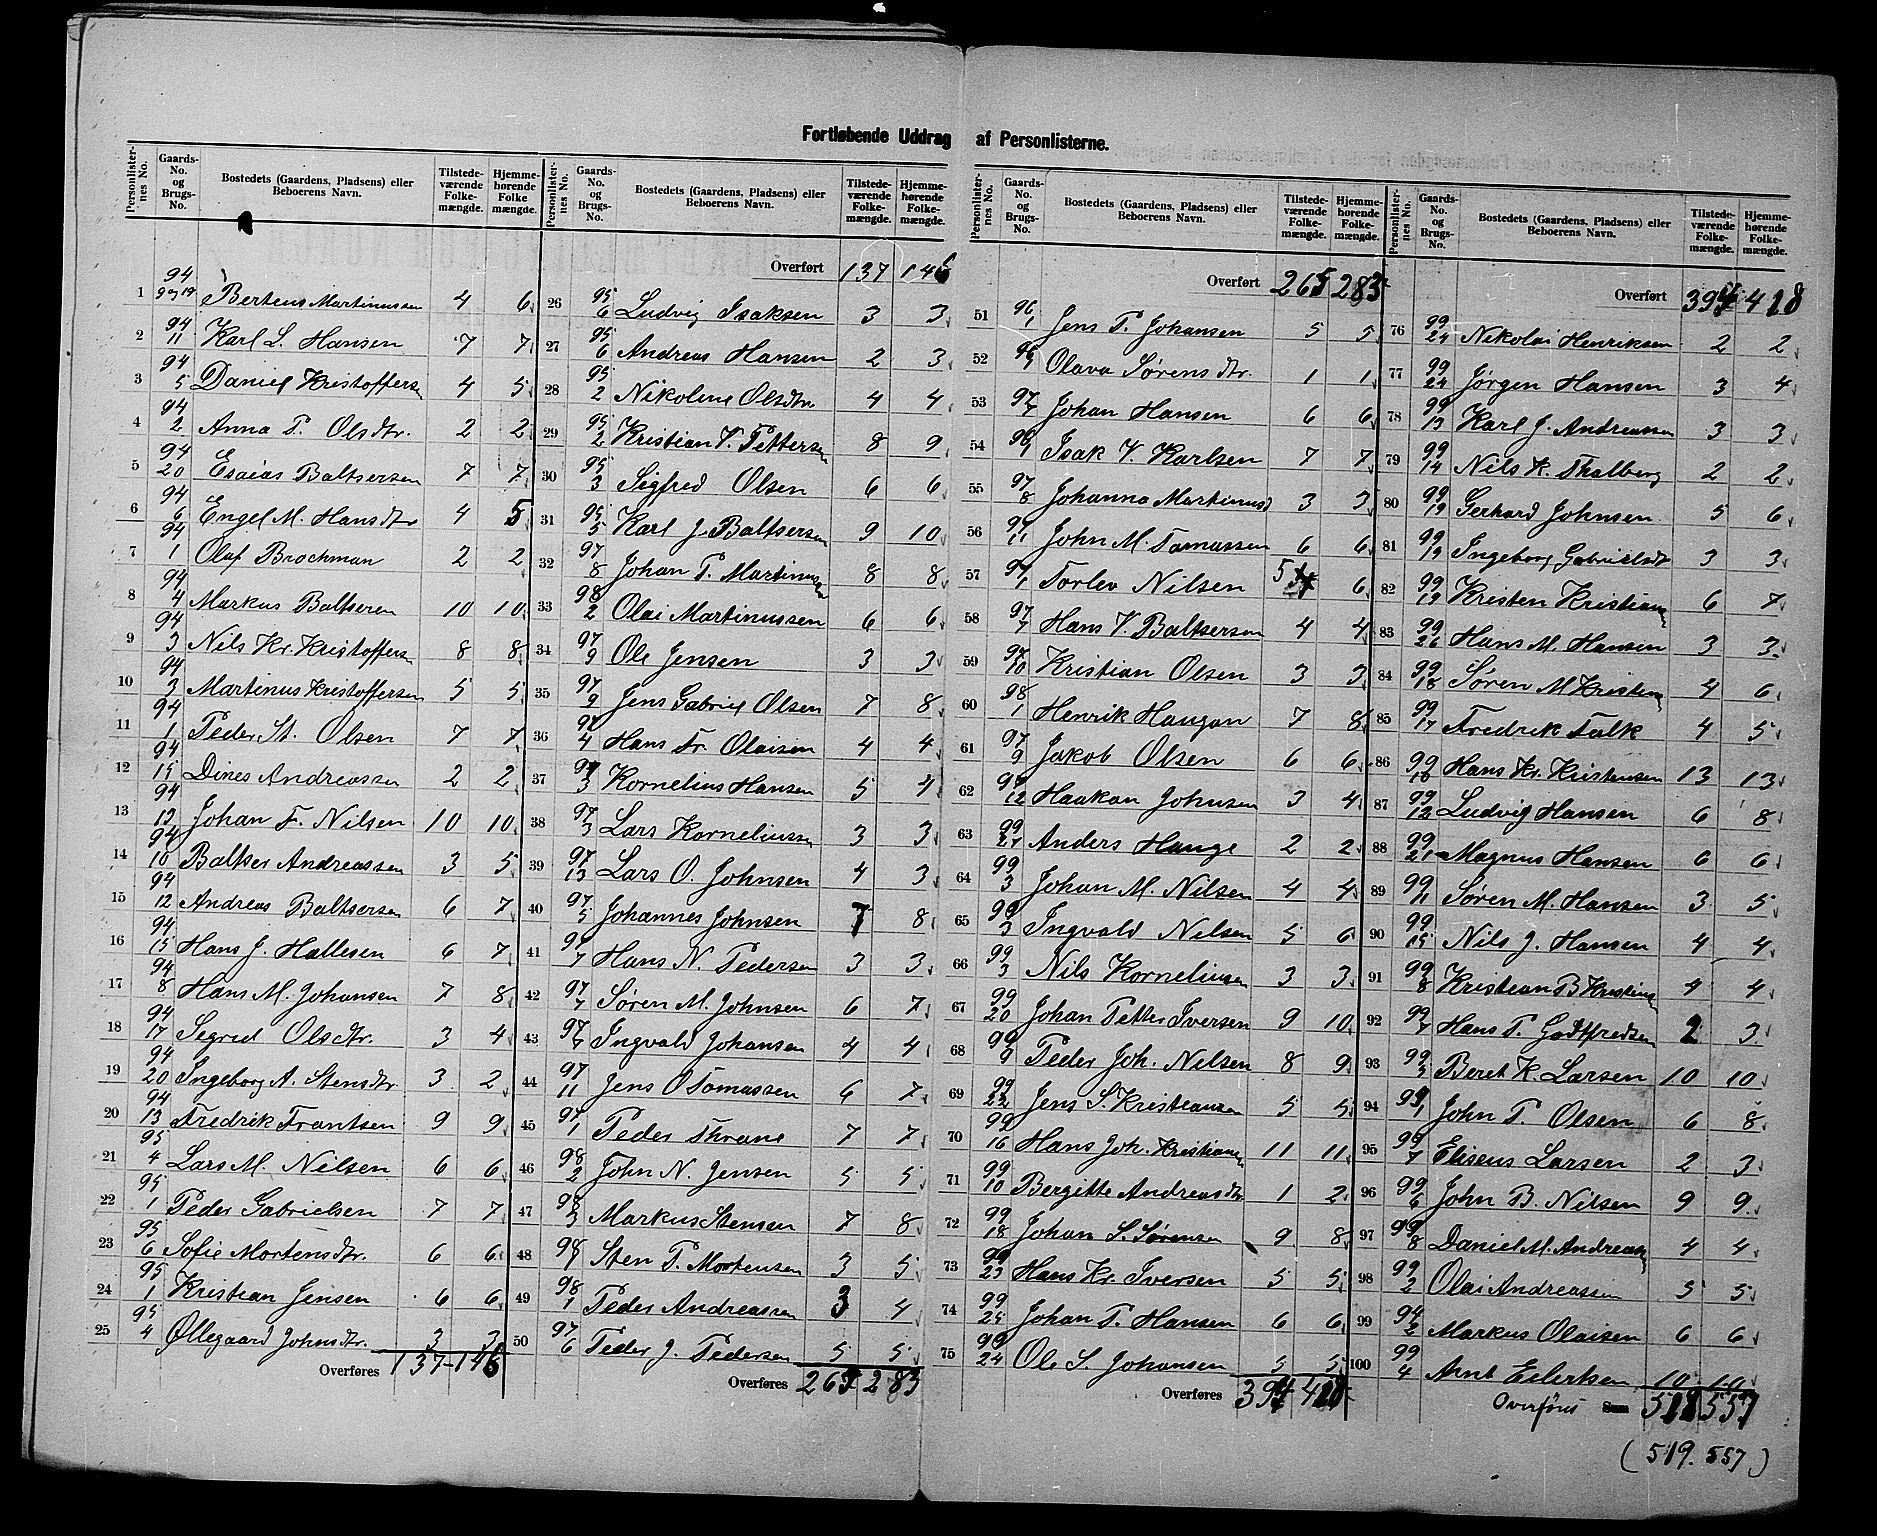 Fortløbende Uddrag af Personlisterne.
Personlisternes No. | Gaards-No. og Brugs-No. | Bostedets (Gaardens, Pladsens) eller Beboerens Navn. | Tilstedeværende Folkemængde. | Hjemmehørende Folkemængde.
1 94 9 og 19 Berteus Martinussen 4 6
2 94 11 Karl L. Hansen 7 7
3 94 5 Daniel Kristoffersen 4 5
4 94 2 Anna P. Olsdtr. 2 2
5 94 20 Esaias Baltsersen 7 7
6 94 6 Engel M. Hansdtr 4 5
7 94 1 Olaf Brochman 2 2
8 94 4 Markus Baltseren 10 10
9 94 3 Nils Kr. Kristoffersn 8 8
10 94 3 Martinus Kristoffersen 5 5
11 94 1 Peder St. Olsen 7 7
12 94 15 Dines Andreassen 2 2
13 94 13 Johan F. Nilsen 10 10
14 94 10 Baltser Andreassen 3 5
15 94 12 Andreas Baltsersen 6 7
16 94 15 Hans J. Hallesen 6 7
17 94 8 Hans M. Johansen 7 8
18 94 17 Segred Olsdtr. 3 4
19 94 20 Ingeborg A. Stensdtr 3 2
20 94 13 Fredrik Frantsen 9 9
21 95 4 Lars M. Nilsen 6 6
22 95 1 Peder Gabrielsen 7 7
23 95 6 Sofie Mortensdtr. 6 6
24 95 1 Kristian Jensen 6 6
25 95 4 Øllegaard Johnsdtr. 3 3
Overføres 137 146
Personlisternes No. | Gaards-No. og Brugs-No. | Bostedets (Gaardens, Pladsens) eller Beboerens Navn. | Tilstedeværende Folkemængde. | Hjemmehørende Folkemængde.
Overført 137 146
26 95 6 Ludvig Isaksen 3 3
27 95 6 Andreas Hansen 2 3
28 95 2 Nikoline Olsdtr 4 4
29 95 2 Kristian V. Pettersen 8 9
30 95 3 Sigfred Olsen 6 6
31 95 5 Karl J. Baltsersen 9 10
32 97 8 Johan P. Martinusen 8 8
33 98 2 Olai Martinussen 6 6
34 97 9 Ole Jensen 3 3
35 97 9 Jens Gabriel Olsen 7 8
36 97 4 Hans Fr. Olaisen 4 4
37 97 3 Kornelius Hansen 5 4
38 97 3 Lars Korneliussen 3 3
39 97 13 Lars O. Johnsen 4 3
40 97 5 Johannes Johnsen 7 8
41 97 7 Hans N. Pedersen 3 3
42 97 7 Søren M. Johnsen 6 7
43 97 7 Ingvald Johansen 4 4
44 97 11 Jens O Tomassen 6 7
45 97 1 Peder Thrane 7 7
46 98 2 John N. Jensen 5 5
47 98 3 Markus Stensen 7 8
48 98 1 Sten P. Mortensen 3 5
49 98 1 Peder Andreassen 3 4
50 97 6 Peder J. Pedersen 5 5
Overføres 265 283
Personlisternes No. | Gaards-No. og Brugs-No. | Bostedets (Gaardens, Pladsens) eller Beboerens Navn. | Tilstedeværende Folkemængde. | Hjemmehørende Folkemængde.
Overført 265 283
51 96 1 Jens P. Johansen 5 5
52 Olava Sørensdtr. 1 1
53 97 7 Johan Hansen 6 6
54 96 1 Isak V. Karlsen 7 7
55 97 8 Johanna Martinusd 3 3
56 97 11 John M. Tomassen 6 6
57 Torlev Nilsen 5 6
58 97 7 Hans V. Baltsersen 4 4
59 97 10 Kristian Olsen 3 3
60 98 1 Henrik Haugan 7 8
61 97 9 Jakob Olsen 6 6
62 97 12 Haakon Johnsen 3 4
63 99 27 Anders Hauge 2 2
64 99 3 Johan M. Nilsen 4 4
65 99 3 Ingvald Nilsen 5 6
66 99 3 Nils Korneliusen 3 3
67 99 20 Johan Petter Iversen 9 10
68 99 9 Peder Joh. Nilsen 8 9
69 99 22 Jens S. Kristiansen 5 5
70 99 16 Hans Joh. Kristiansen 11 11
71 99 10 Bergitte Andreasdtr 1 2
72 99 18 Johan S. Sørensen 9 8
73 99 23 Hans Kr. Iversen 5 5
74 99 25 Johan P. Hansen 6 6
75 99 24 Ole S. Johansen 5 5
Overføres 394 418
Personlisternes No. | Gaards-No. og Brugs-No. | Bostedets (Gaardens, Pladsens) eller Beboerens Navn. | Tilstedeværende Folkemængde. | Hjemmehørende Folkemængde.
Overført 394 418
76 99 24 Nikolai Henriksen 2 2
77 99 24 Jørgen Hansen 3 4
78 99 13 Karl J. Andreassen 3 3
79 99 14 Nils K. Thalberg 2 2
80 99 19 Gerhard Johnsen 5 6
81 99 19 Ingeborg Gabrielsdt 3 3
82 99 19 Kristen Kristians 6 7
83 99 26 Hans M. Hansen 3 3
84 99 18 Søren M Kristens 4 6
85 99 17 Fredrik Falk 4 5
86 99 18 Hans Kr. Kristensen 13 13
87 99 12 Ludvig Hansen 6 8
88 99 21 Magnus Hansen 6 6
89 99 11 Søren M. Hansen 3 5
90 99 15 Nils J. Hansen 4 4
91 99 8 Kristian B Kristians 4 4
92 99 7 Hans P. Godtfredsen 2 3
93 99 3 Beret K. Larsen 10 10
94 99 1 John P. Olsen 6 8
95 99 7 Eliseus Larsen 2 3
96 99 6 John B. Nilsen 9 9
97 99 8 Daniel M. Andreassen 4 4
98 99 2 Olai Andreassen 5 5
99 94 2 Markus Olaisen 6 6
100 99 4 Arnt Eilertsen 10 10
Overføres Sum 518 557
(519. 557)